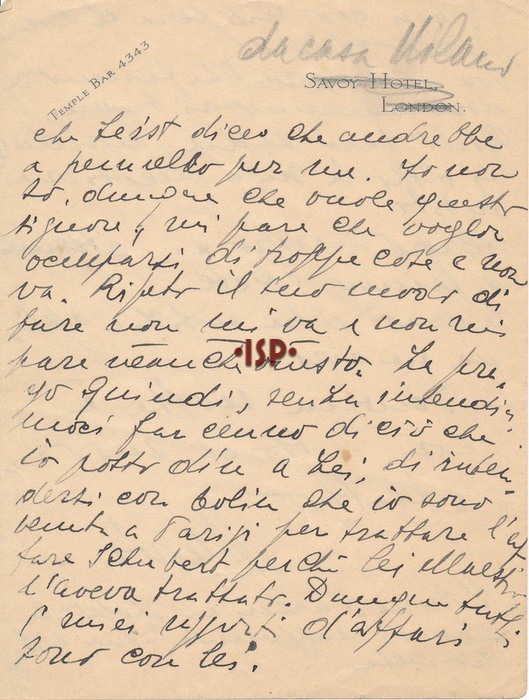 da casa Milano
TEMPLE BAR 4343
SAVOY HOTEL,
LONDON.
che Leist dice che andrebbe
a pennello per me. Io non
so, dunque che vuole questo
signore, mi pare che voglia
occuparsi di troppe cose e non
va. Ripeto il suo modo di
fare non mi va e non mi
pare neanche giusto. La pre-
go quindi, senza intendia-
moci far cenno di ciò che
io posso dire a Lei, di inten-
dersi con Colin che io sono
venuta a Parigi per trattare l'af
fare Schubert perchè lei Maestro
l'aveva trattato. Dunque tutti
i miei rapporti d'affari
sono con lei.
ISP